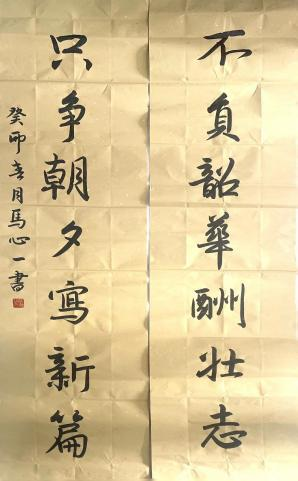 不負韶華酬壯志
只争朝夕寫新篇
癸卯春月馬心一書